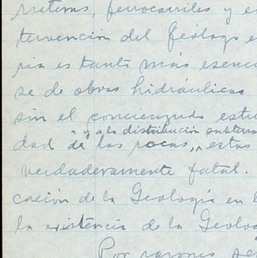 rreteras, ferrocarriles y e
tervención del Geólogo e
ria es tanto más esenc
se de obras hidráulicas
sin el concienzudo estu
y a la distribución subterrá
dad de las rocas, estas
verdaderamente fatal.
cación de la Geología en l
la existencia de la Geolog
Por razones se